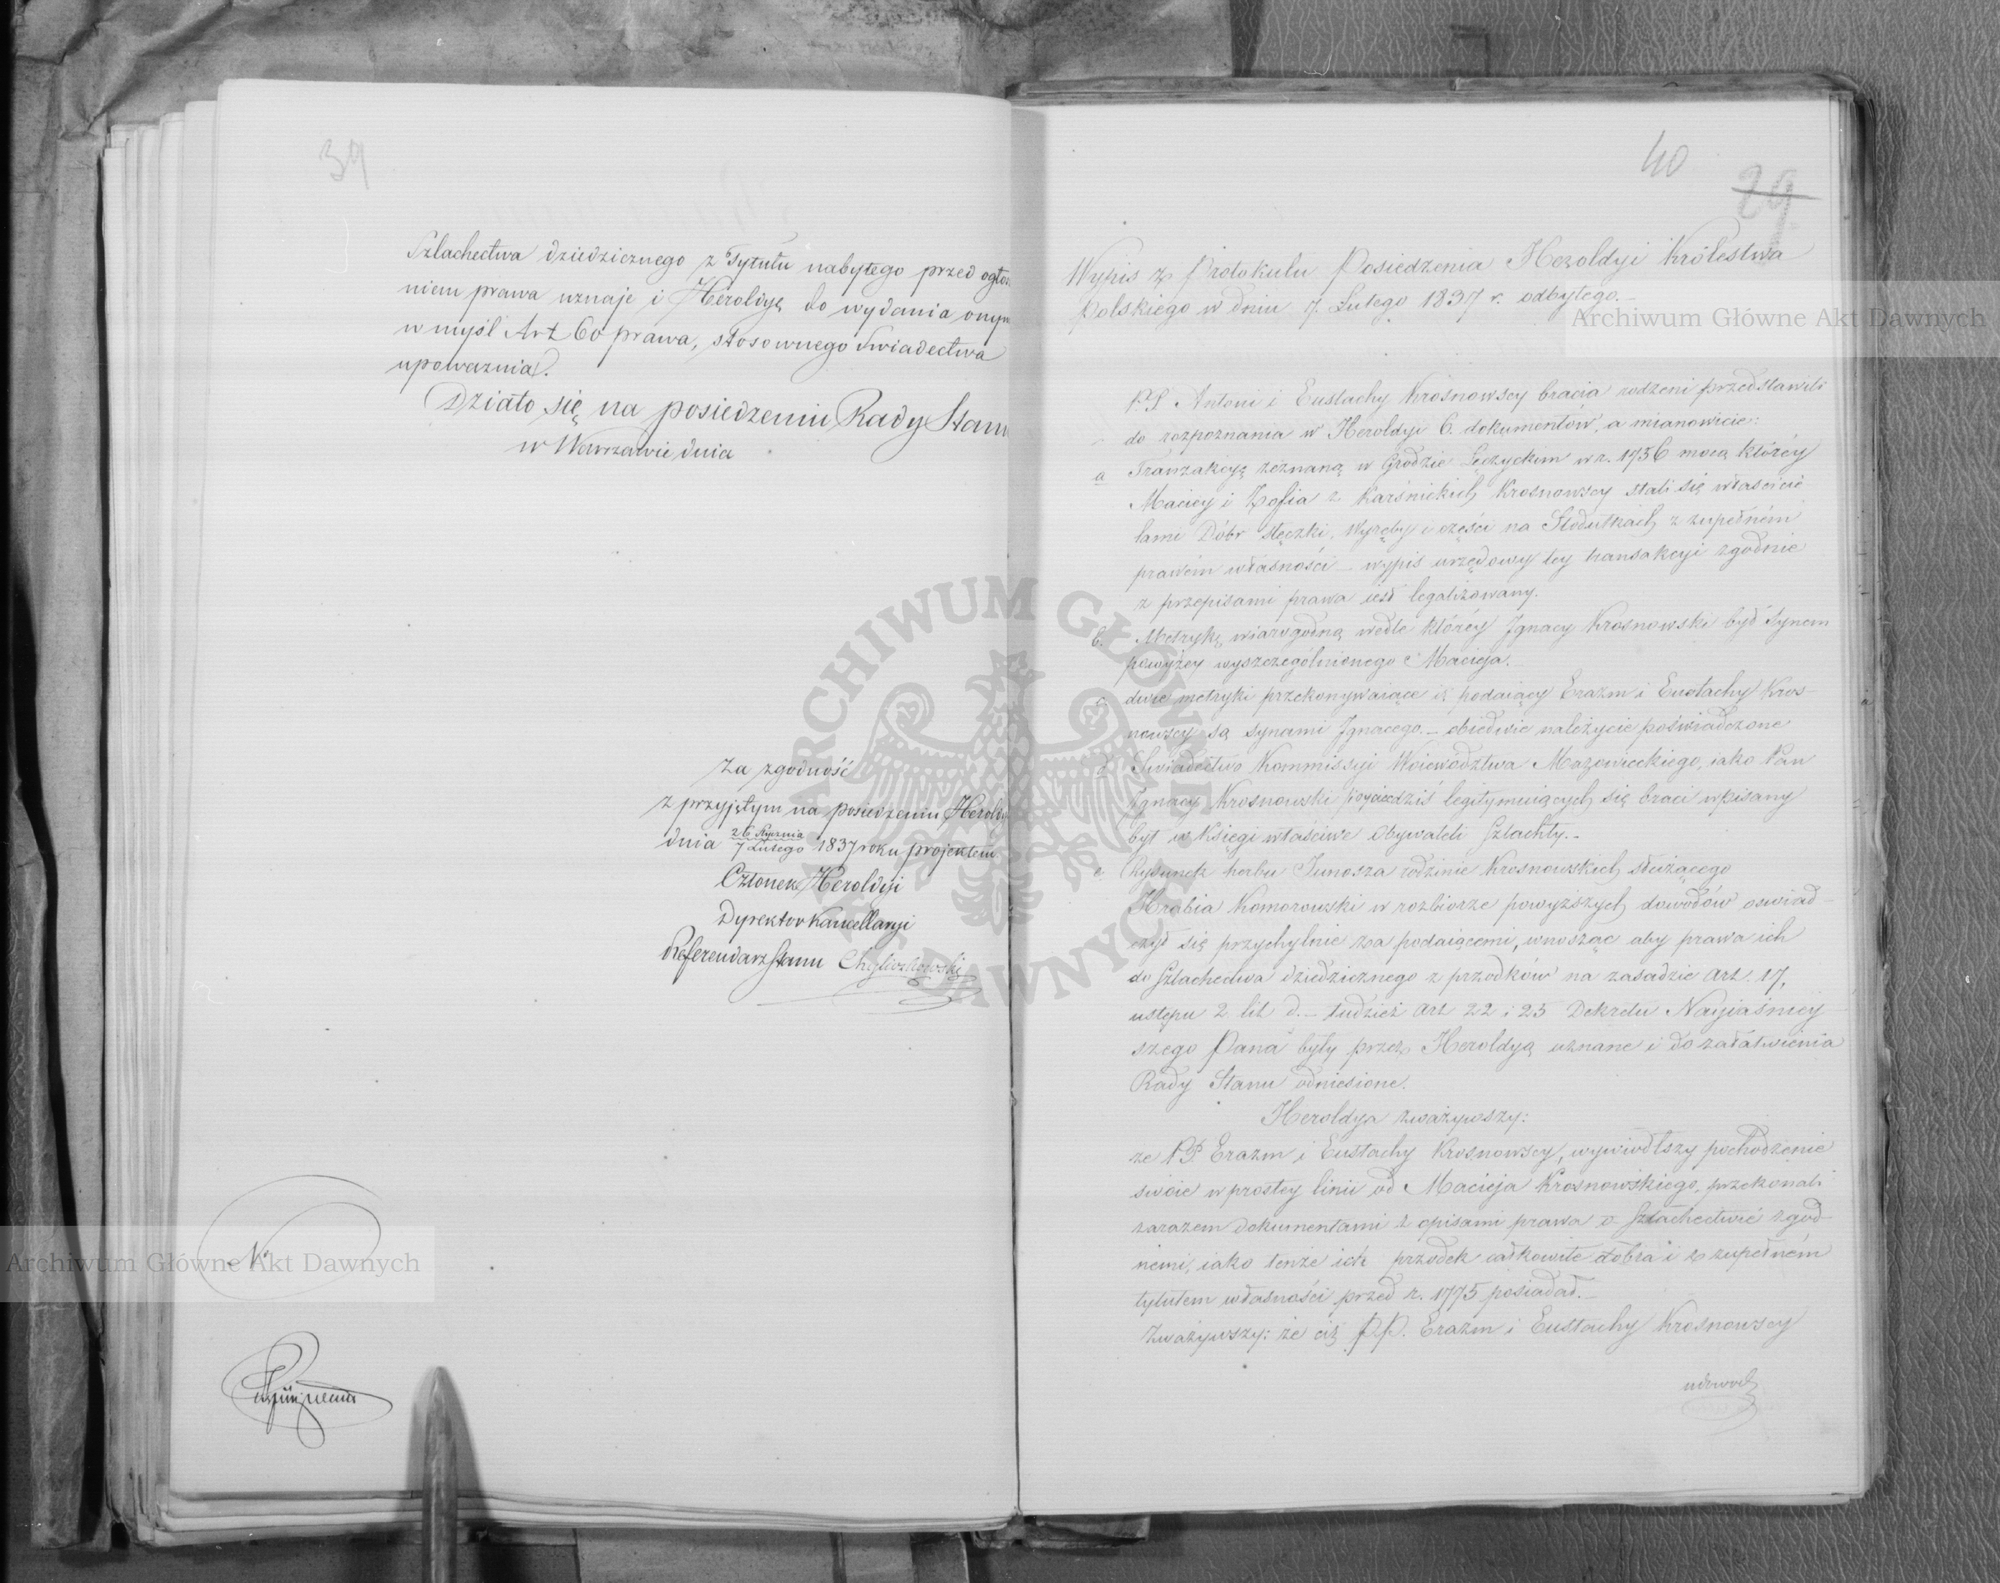 39
Szlachectwa dziedzicznego z Tytułu nabytego przed ogło
niem prawa uznaje i Heroldyą do wydania onym
w myśl Art 60 prawa, stosownego Świadectwa
upoważnia.
Działo się na posiedzeniu Rady Stanu
w Warszawie dnia
Za zgodność
z przyjętym na posiedzeniu Heroldyi
dnia 26 Stycznia / 7 Lutego 1837 roku projektem
Członek Heroldyi
Dyrektor Kancellaryi
Referendarz Stanu Chyliczkowski
40
29
Wypis z Protokułu Posiedzenia Heroldyi Królestwa
Polskiego w dniu 7 Lutego 1837 r. odbytego.
P.P. Antoni i Eustachy Krosnowscy bracia rodzeni przedstawili
do rozpoznania w Heroldyi 6. dokumentów, a mianowicie:
a Tranzakcyą zeznaną w Grodzie Łęczyckim w r. 1756 mocą któréy
Maciey i Zofia z Karśnickich Krosnowscy stali się właścicie
lami Dóbr Stęczki, Wyręby i części na Słodułkach z zupełném
prawem własności – wypis urzędowy tey transakcyi zgodnie
z przepisami prawa iest legalizowany.
b. Metrykę wiarogodną wedle któréy Ignacy Krosnowski był Synem
powyżey wyszczególnionego Macieja.
c dwie metryki przekonywaiące iż podaiący Erazm i Eustachy Kros-
nowscy są synami Ignacego – obiedwie należycie poświadczone
d Świadectwo Kommissyi Woiewództwa Mazowieckiego, iako Pan
Ignacy Krosnowski oyciec dziś legitymuiących się braci wpisany
był w Księgi właściwe Obywateli Szlachty.-
e Rysunek herbu Junosza rodzinie Krosnowskich służącego
Hrabia Komorowski w rozbiorze powyższych dowodów oświad-
czył się przychylnie za podaiącemi, wnosząc aby prawa ich
do Szlachectwa dziedzicznego z przodków na zasadzie Art. 17,
ustępu 2. lit d. – tudzież Art 22 i 25 Dekretu Nayiaśniey-
szego Pana były przez Heroldyą uznane i do załatwienia
Rady Stanu odniesione.
Heroldya zważywszy:
że P.P. Erazm i Eustachy Krosnowscy, wywiódłszy pochodzenie
swoie w prostey linii od Macieja Krosnowskiego, przekonali
zarazem dokumentami z opisami prawa o Szlachectwie zgod-
nemi, iako tenże ich przodek całkowite dobra i z zupełném
tytułem własności przed r. 1775 posiadał.-
Zważywszy: że ciż P.P. Erazm i Eustachy Krosnowscy
udowod
Archiwum Główne Akt Dawnych
Archiwum Główne Akt Dawnych
ARCHIWUM GŁÓWNE AKT DAWNYCH